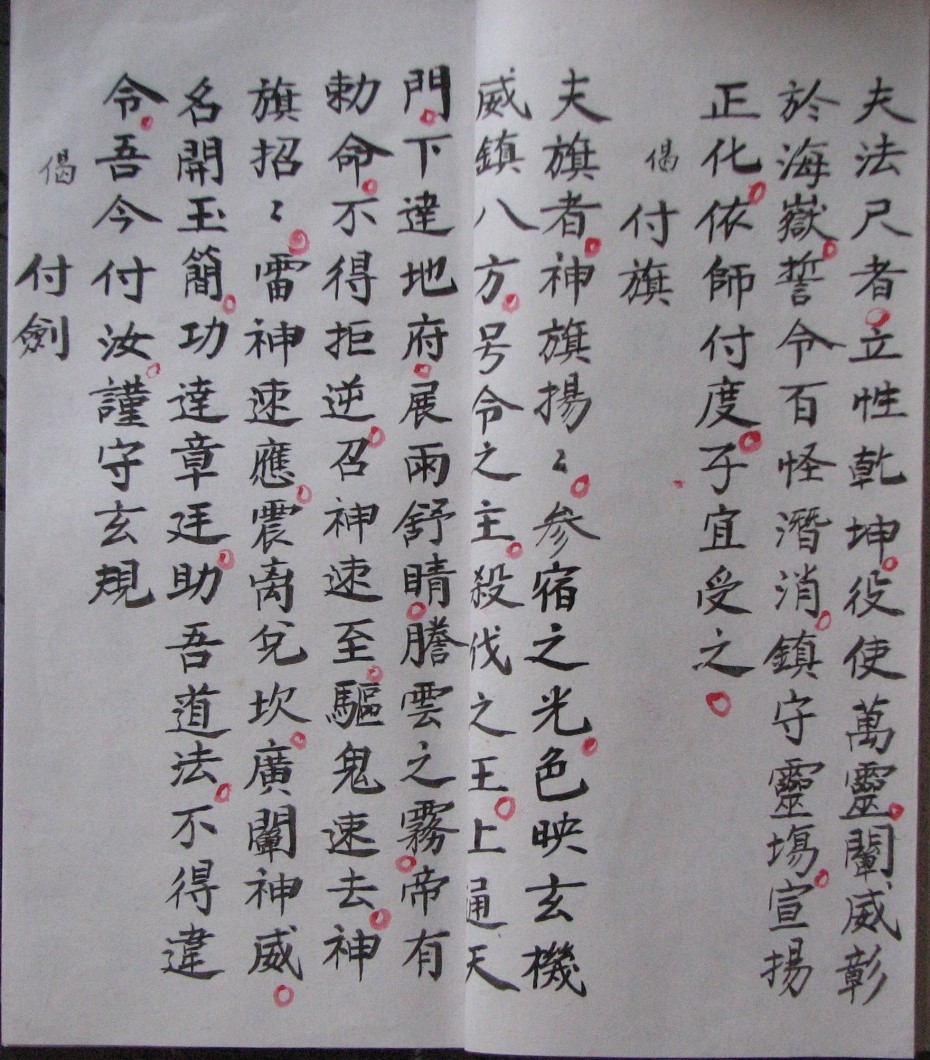 夫法尺者立性乾坤役使萬靈闡威彰
於海嶽誓令百怪潛消鎮守靈塲宣揚
正化依師付度子宜受之
偈 付旗
夫旗者神旗揚〻參宿之光色映玄機
威鎮八方号令之主殺伐之王上通天
門下達地府展雨舒晴謄雲之霧帝有
勅命不得拒逆召神速至驅鬼速去神
旗招〻雷神速應震离兌坎廣闡神威
名開玉簡功達章廷助吾道法不得違
令吾今付汝謹守玄規
偈 付劍